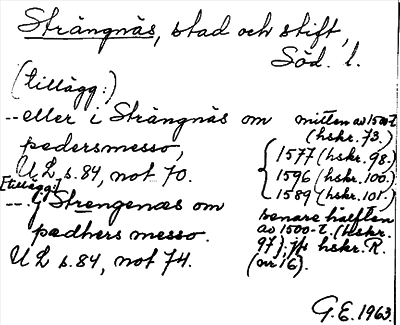 Strängnäs, stad och stift,
Söd. l.
(tillägg:)
-- eller i Strängnäs om
pedersmesso,
UL s. 84, not 70.
mitten av 1500-t.
(hskr. 73.)
1577 (hskr. 98.)
1596 (hskr. 100.)
1589 (hskr. 101.)
[tillägg:]
--- j Strengenæs om
pædhers messo.
UL s. 84, not 74.
senare hälften
av 1500-t. (hskr.
97); jfr hskr. R.
(nr 16).
G.E. 1963.